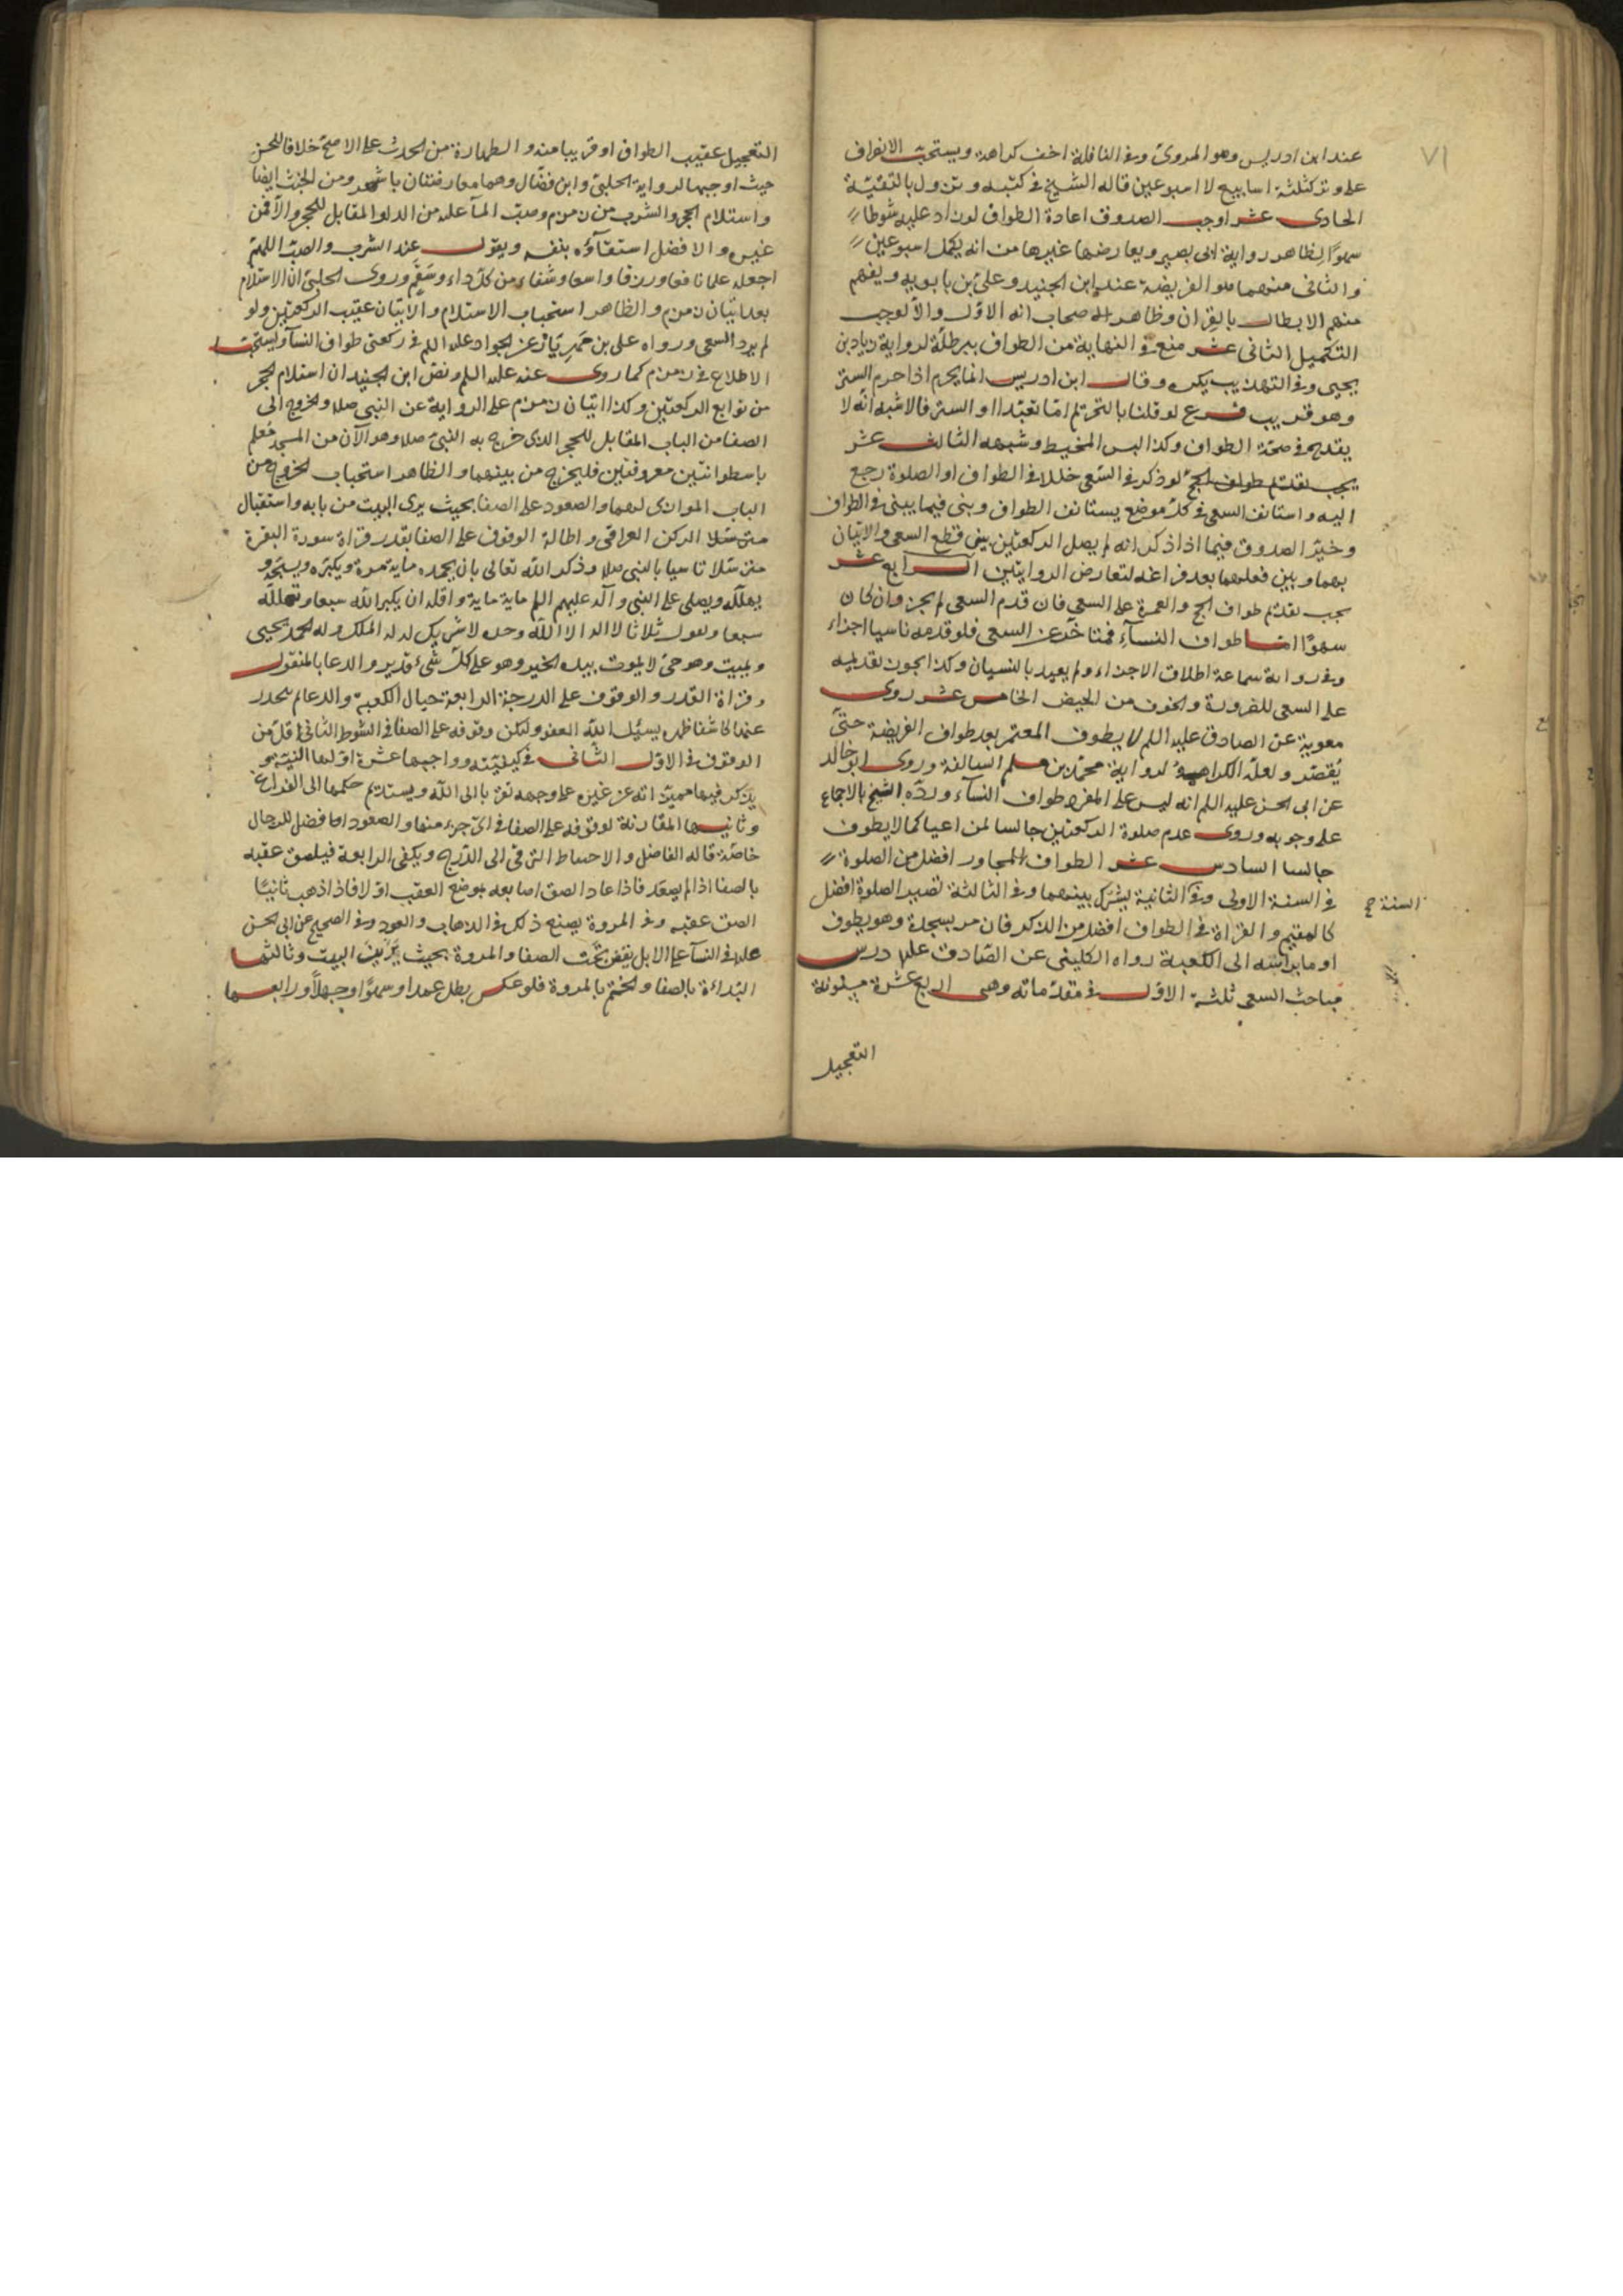 ٧١
عند ابن ادريس وهو المروى وفى النافلة اخف كراهة ويستحب الانصراف
على وتر كثلثة اسابيع لا اسبوعين قاله الشيخ فى كتبه وتزول بالتقية
الحادى عشر اوجب الصدوق اعادة الطواف لو زاد عليه شوطا
سهوا لظاهر رواية ابى بصير ويعارضها غيرها من انه يكمل اسبوعين
والثانى منهما هو الفريضة عند ابن الجنيد وعلى بن بابويه ويفهم
منهم الابطال بالقران وظاهر الاصحاب انه الاول والا لوجب
التكميل الثانى عشر منع فى النهاية من الطواف ببرطلة لرواية زياد بن
يحيى وفى التهذيب يكره وقال ابن ادريس انما يحرم اذا حرم الستر
وهو قريب فرع لو قلنا بالتحريم اما تعبدا او الستر فالاشبه انه لا
يقدح فى صحة الطواف وكذا لبس المخيط وشبهه الثالث عشر
يجب تقديم طواف الحج لو ذكر فى السعى خللا فى الطواف او الصلوة رجع
اليه واستانف السعى فى كل موضع يستانف الطواف وبنى فيما يبنى فى الطواف
وخير الصدوق فيما اذا ذكر انه لم يصل الركعتين بين قطع السعى والاتيان
بهما وبين فعلهما بعد فراغه لتعارض الروايتين الرابع عشر
يجب تقديم طواف الحج والعمرة على السعى فان قدم السعى لم يجز وان كان
سهوا اما طواف النساء فمتاخر عن السعى فلو قدمه ناسيا اجزاء
وفى رواية سماعة اطلاق الاجزاء ولم يعيد بالنسيان وكذا يجوز تقديمه
على السعى للضرورة والخوف من الحيض الخامس عشر روى
معوية عن الصادق عليه اللم لا يطوف المعتمر بعد طواف الفريضة حتى
يقصر ولعله الكراهية لرواية محمد بن مسلم السالفة وروى ابو خالد
عن ابى الحسن عليه اللم انه ليس على المفرد طواف النساء ورده الشيخ بالاجماع
على وجوبه وروى عدم صلوة الركعتين جالسا لمن اعيا كما لا يطوف
جالسا السادس عشر الطواف للمجاور افضل من الصلوة
فى السنة الاولى وفى الثانية يشرك بينهما وفى الثالثة تصير الصلوة افضل
السنة ح
كالمقيم والقراة فى الطواف افضل من الذكر فان مر بسجدة وهو يطوف
اوما براسه الى الكعبة رواه الكلينى عن الصادق علیه درس
مباحث السعى ثلثة الاول فى مقدماته وهى اربع عشرة مسنونة
التعجيل
التعجيل عقيب الطواف او قريبا منه والطهارة من الحدث على الاصح خلافا للحسن
حيث اوجبها لرواية الحلبى وابن فضال وهما معارضتان باشهر ومن الخبث ايضا
واستلام الحجر والشرب من زمزم وصب الماء عليه من الدلو المقابل للحجر والا فمن
غيره والافضل استقاؤه بنفسه ويقول عند الشرب والصب اللهم
اجعله علما نافعا ورزقا واسعا وشفاء من كل داء وسقم وروى الحلبى ان الاستلام
بعد اتيان زمزم والظاهر استحباب الاستلام والاتيان عقيب الركعتين ولو
لم يرد السعى ورواه على بن مهزيار عن الجواد عليه اللم فى ركعتى طواف النساء ويستحب
الاطلاع فى زمزم كما روى عنه عليه اللم ونص ابن الجنيد ان استلام الحجر
من توابع الركعتين وكذا اتيان زمزم على الرواية عن النبى صلا والخروج الى
الصفا من الباب المقابل للحجر الذى خرج به النبى صلا وهو الآن من المسجد معلم
باسطوانتين معروفتين فليخرج من بينهما والظاهر استحباب الخروج من
الباب الموازى لهما والصعود على الصفا بحيث يرى البيت من بابه واستقبال
الركن العراقى واطالة الوقوف على الصفا بقدر قراة سورة البقرة
تاسيا بالنبى صلا وذكر الله تعالى بان يحمده ماية مرة ويكبره ويسبحه و
يهلله ويصلى على النبى وآله عليهم اللم ماية ماية واقله ان يكبر الله سبعا ويهلله
سبعا ويقول ثلاثا لا اله الا الله وحده لا شريك له له الملك وله الحمد يحيى
ويميت وهو حى لا يموت بيده الخير وهو على كل شىء قدير والدعا بالمنقول
وقراة القدر والوقوف على الدرجة الرابعة حيال الكعبة والدعا ثم ينحدر
عنها كاشفا ظهره يسئل الله العفو وليكن وقوفه على الصفا فى الشوط الثانى اقل من
الوقوف فى الاول الثانى فى كيفيته وواجبها عشرة اولها النية و
يذكر فيها مميزاته عن غيره على وجهه تقربا الى الله ويستديم حكمها الى الفراغ
وثانيها المقارنة لوقوفه على الصفا فى اى جزء منها والصعود افضل للرجال
خاصة قاله الفاضل والاحتياط الترقى الى الدرج ويكفى الرابعة فيلصق عقبه
بالصفا اذا لم يصعد فاذا عاد الصق اصابعه بموضع العقب اولا فاذا ذهب ثانيا
الصق عقبه وفى المروة يصنع ذلك فى الذهاب والعود وفى الصحيح عن ابى الحسن
عليه فى النساء على الابل يقفن تحت الصفا والمروة بحيث يرين البيت وثالثها
البداءة بالصفا والختم بالمروة فلو عكس بطل عمدا او سهوا او جهلا ورابعها